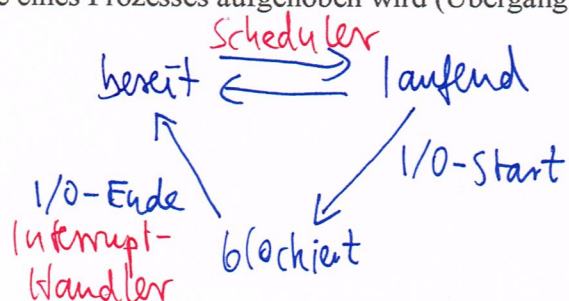 e eines Prozesses aufgehoben wird (Übergang
Scheduler
bereit laufend
I/O-Start
I/O-Ende
Interrupt-
blockiert
Handler